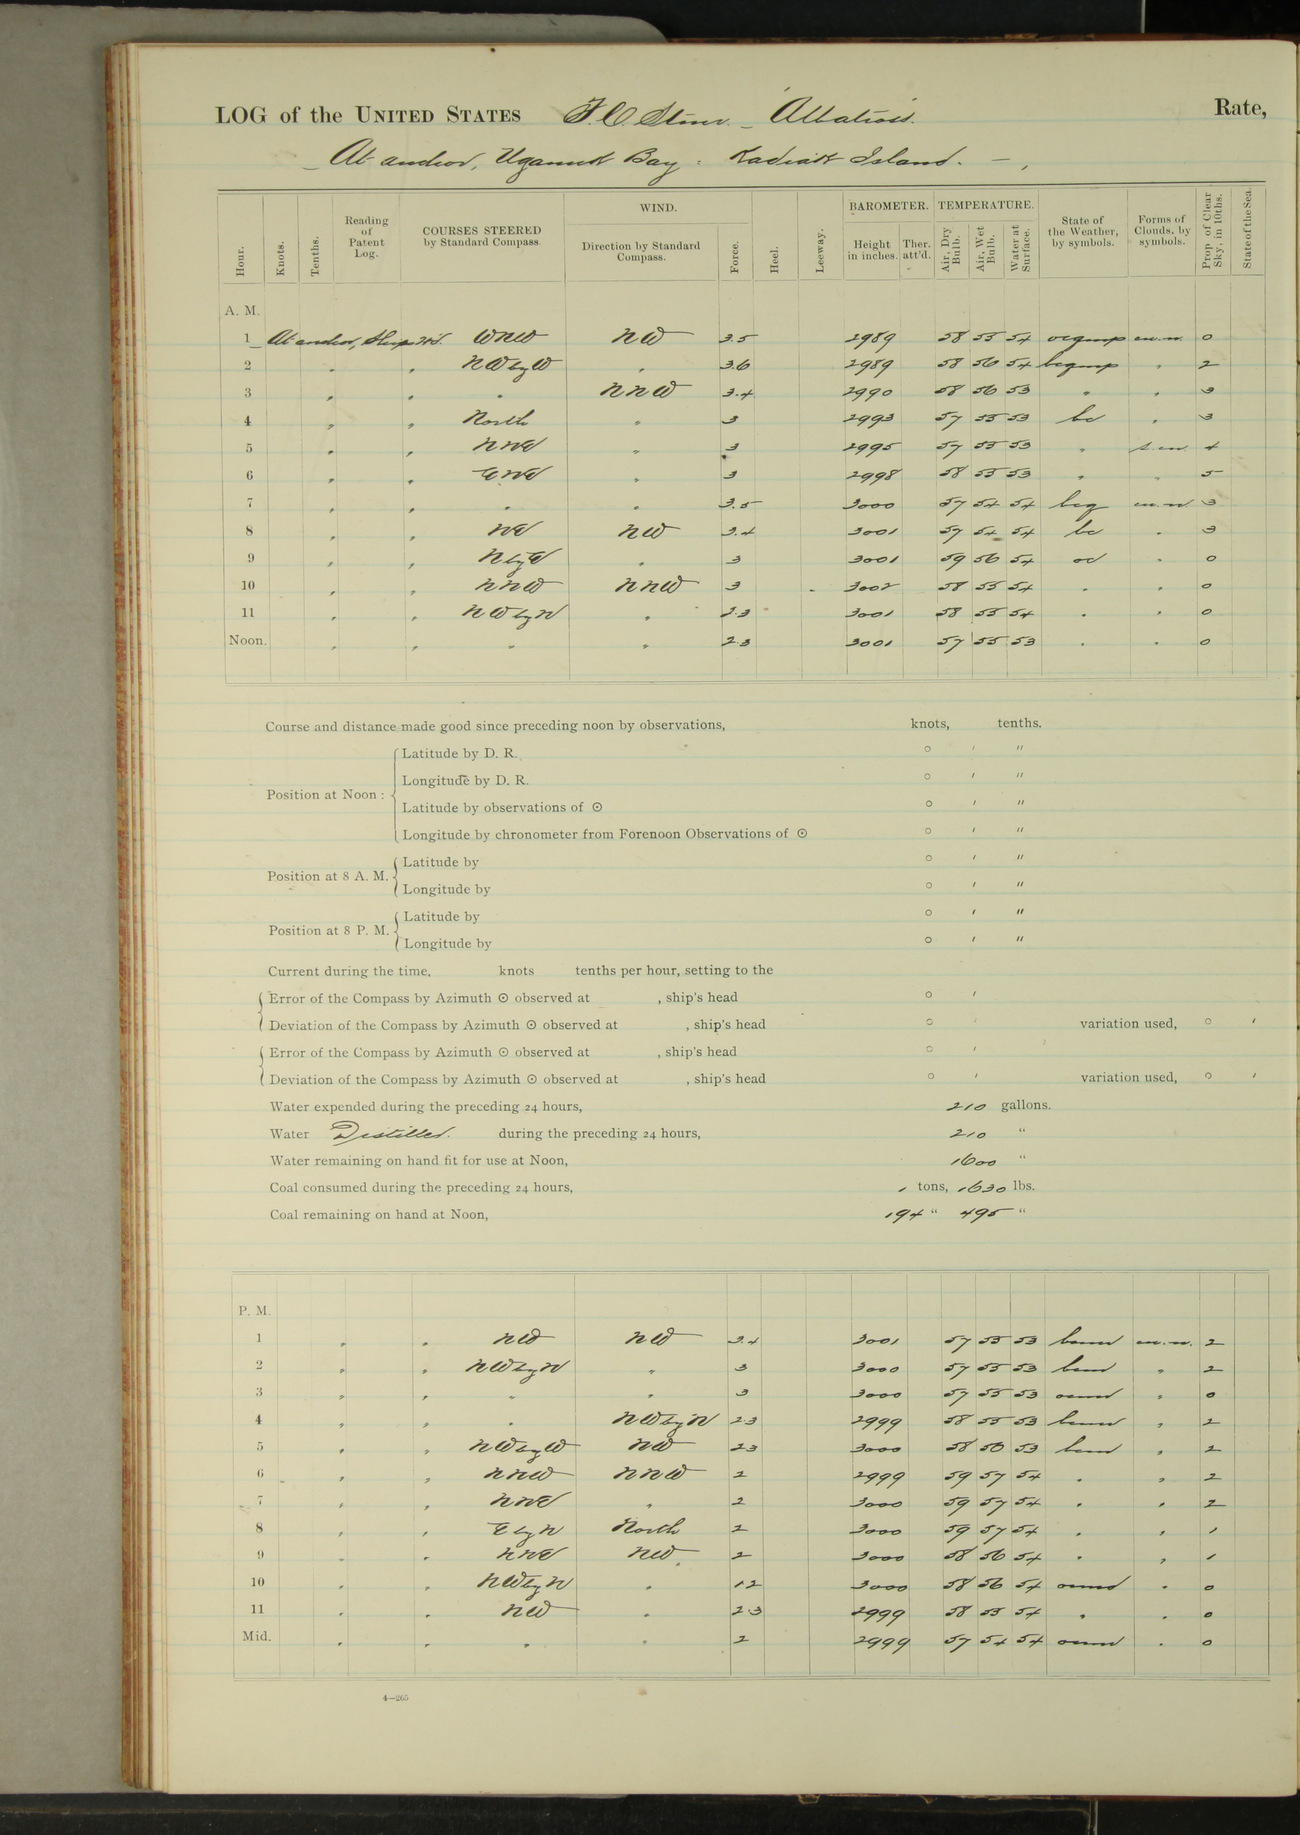 LOG of the UNITED STATES F. C. Stmr. - Albatross. Rate,
- At anchor, Uganuk Bay : Kadiak Island. - ,
Hour. Knots. Tenths. Reading of Patent Log. COURSES STEERED by Standard Compass. WIND. Direction by Standard Compass. Force. Heel. Leeway. BAROMETER. Height in inches. Ther. att'd. TEMPERATURE. Air, Dry Bulb. Air, Wet Bulb. Water at Surface. State of the Weather, by symbols. Forms of Clouds, by symbols. Prop. of Clear Sky, in 10ths. State of the Sea.
A. M.
1 At anchor, Ship's H'd. WNW NW 3.5 2989 58 55 54 ocqmp cu.n. 0
2 " " NWbyW " 3.6 2989 58 56 54 bcqmp " 2
3 " " " NNW 3.4 2990 58 56 53 " " 3
4 " " North " 3 2993 57 55 53 bc " 3
5 " " NNE " 3 2995 57 55 53 " s.cu. 4
6 " " ENE " 3 2998 58 55 53 " " 5
7 " " " " 3.5 3000 57 54 54 bcq cu.n. 3
8 " " NE NW 3.4 3001 57 54 54 bc " 3
9 " " NbyE " 3 3001 59 56 54 oc " 0
10 " " NNW NNW 3 3002 58 55 54 " " 0
11 " " NWbyN " 2.3 3001 58 55 54 " " 0
Noon. " " " " 2.3 3001 57 55 53 " " 0
Course and distance made good since preceding noon by observations, knots, tenths.
Position at Noon : Latitude by D. R. ° ′ ″
Longitude by D. R. ° ′ ″
Latitude by observations of ⊙ ° ′ ″
Longitude by chronometer from Forenoon Observations of ⊙ ° ′ ″
Position at 8 A. M. Latitude by ° ′ ″
Longitude by ° ′ ″
Position at 8 P. M. Latitude by ° ′ ″
Longitude by ° ′ ″
Current during the time, knots tenths per hour, setting to the
Error of the Compass by Azimuth ⊙ observed at , ship's head ° ′
Deviation of the Compass by Azimuth ⊙ observed at , ship's head ° ′ variation used, ° ′
Error of the Compass by Azimuth ⊙ observed at , ship's head ° ′
Deviation of the Compass by Azimuth ⊙ observed at , ship's head ° ′ variation used, ° ′
Water expended during the preceding 24 hours, 210 gallons.
Water Distilled. during the preceding 24 hours, 210 "
Water remaining on hand fit for use at Noon, 1600 "
Coal consumed during the preceding 24 hours, 1 tons, 1630 lbs.
Coal remaining on hand at Noon, 194 " 495 "
P. M.
1 " " NW NW 3.4 3001 57 55 53 cu.n. 2
2 " " NWbyN " 3 3000 57 55 53 " 2
3 " " " " 3 3000 57 55 53 " 0
4 " " " NWbyN 2.3 2999 58 55 53 " 2
5 " " NWbyW NW 2.3 3000 58 53 " 2
6 " " NNW NNW 2 2999 59 57 54 " " 2
7 " " NNE " 2 3000 59 57 54 " " 2
8 " " EbyN North 2 3000 59 57 54 " " 1
9 " " NNE NW 2 3000 58 56 54 " " 1
10 " " NWbyN " 1.2 3000 58 56 54 " 0
11 " " NW " 2.3 2999 58 55 54 " " 0
Mid. " " " " 2 2999 57 54 54 " 0
4—265